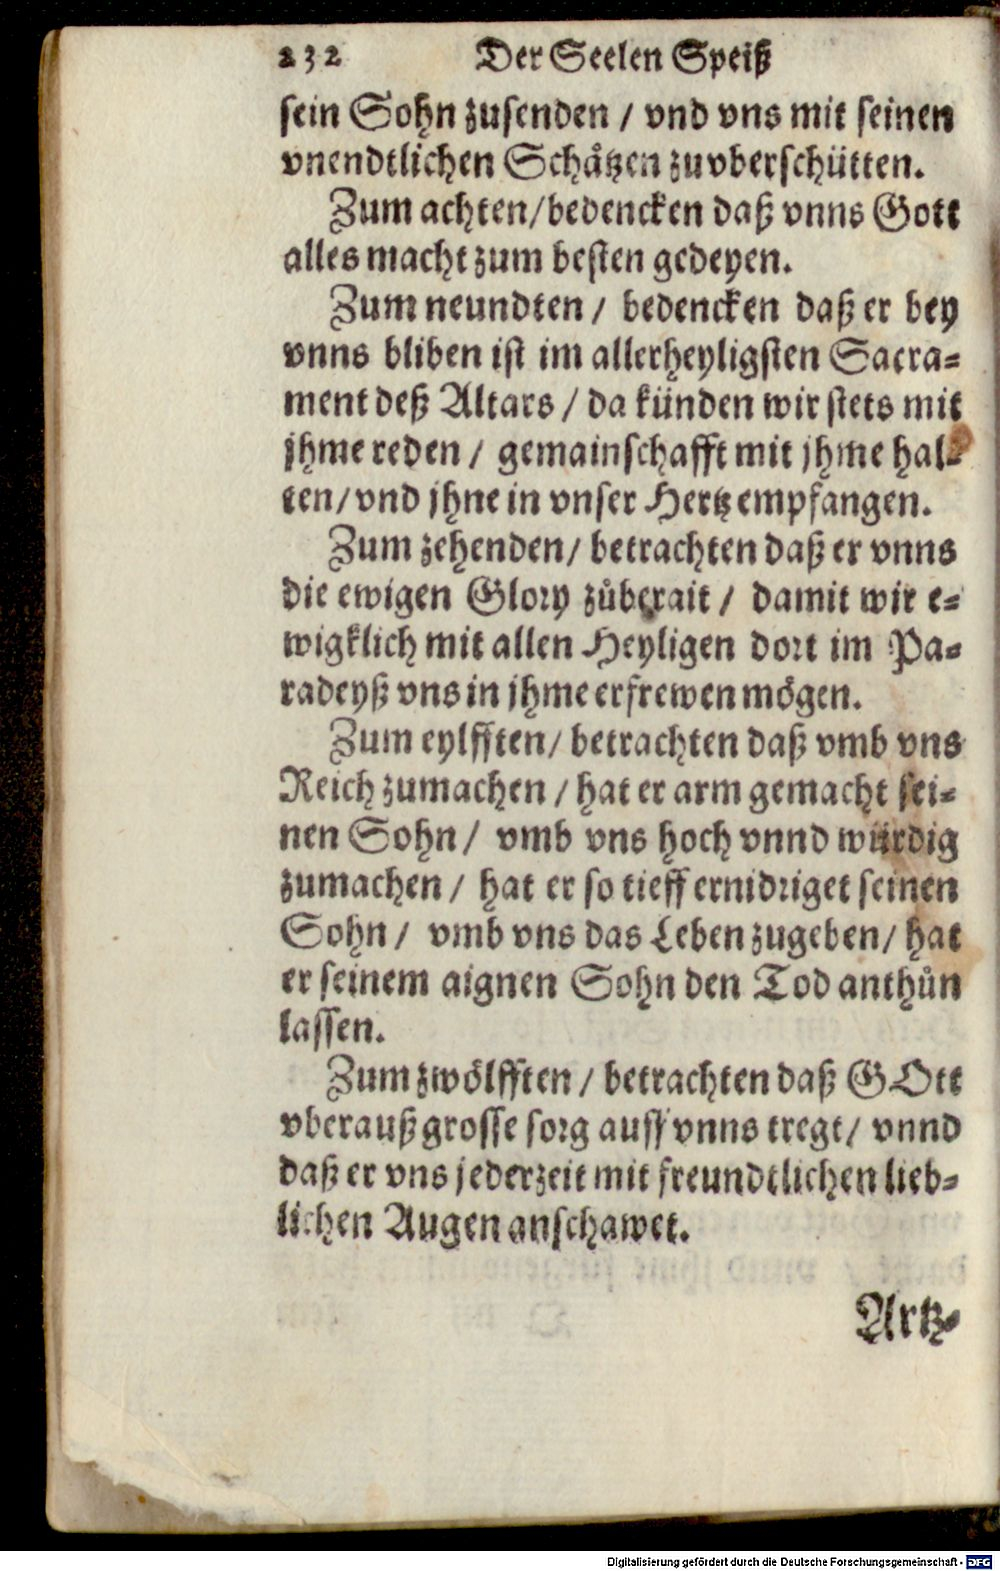 232 Der Seelen Speiß
sein Sohn zusenden / vnd vns mit seinen
vnendtlichen Schåtzen zuvberschütten.
Zum achten/bedencken daß vnns Gott
alles macht zum besten gedeyen.
Zum neundten / bedencken daß er bey
vnns bliben ist im allerheyligsten Sacra-
ment deß Altars / da künden wir stets mit
jhme reden / gemainschafft mit jhme hal-
ten/vnd jhne in vnser Hertz empfangen.
Zum zehenden/ betrachten daß er vnns
die ewigen Glory zůberait / damit wir e-
wigklich mit allen Heyligen dort im Pa-
radeyß vns in jhme erfrewen mögen.
Zum eylfften/ betrachten daß vmb vns
Reich zumachen / hat er arm gemacht sei-
nen Sohn / vmb vns hoch vnnd würdig
zumachen / hat er so tieff ernidriget seinen
Sohn / vmb vns das Leben zugeben/ hat
er seinem aignen Sohn den Tod anthůn
lassen.
Zum zwölfften / betrachten daß GOtt
vberauß grosse sorg auff vnns tregt/ vnnd
daß er vns jederzeit mit freundtlichen lieb-
lichen Augen anschawet.
Artz-
Digitalisierung gefördert durch die Deutsche Forschungsgemeinschaft - DFG